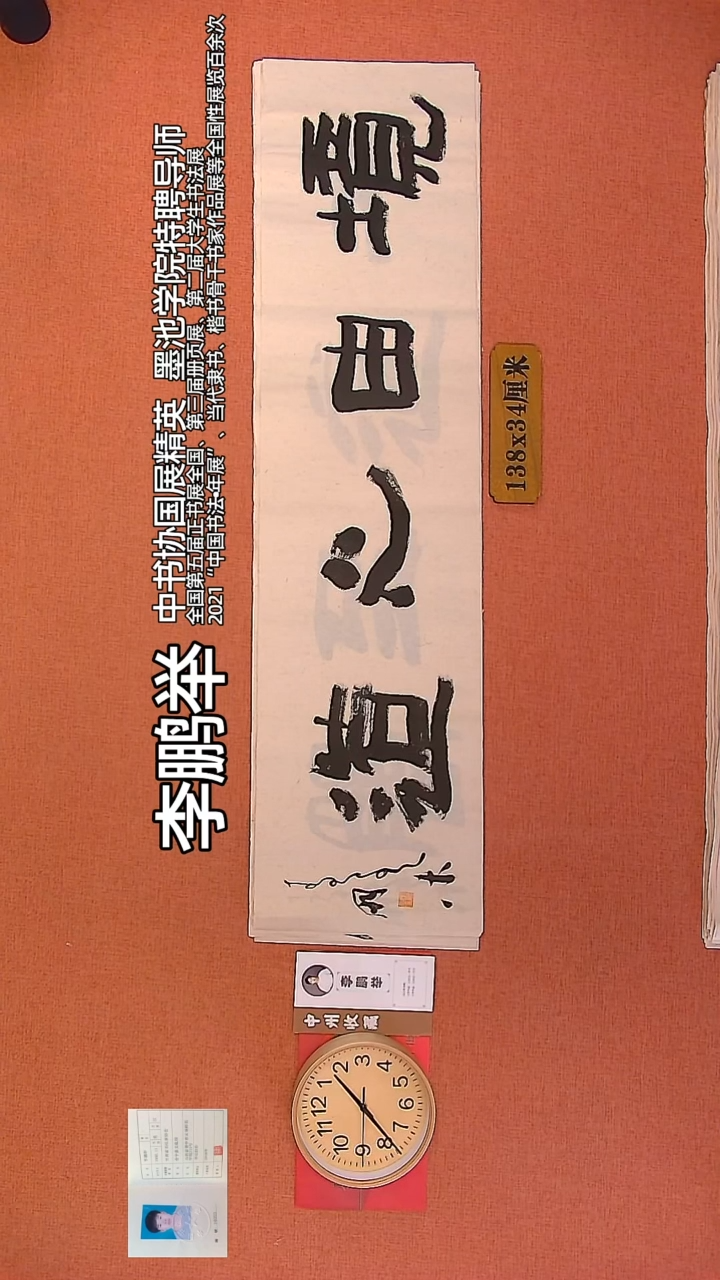 李鹏举
中书协国展精英 墨池学院特聘导师
全国第五届正书展全国、第三届册页展、第二届大学生书法展
2021“中国书法•年展”、当代隶书、楷书骨干书家作品展等全国性展览百余次
境由心造
138x34厘米
李鹏举
中州收藏
12 1 2 3 4 5 6 7 8 9 10 11